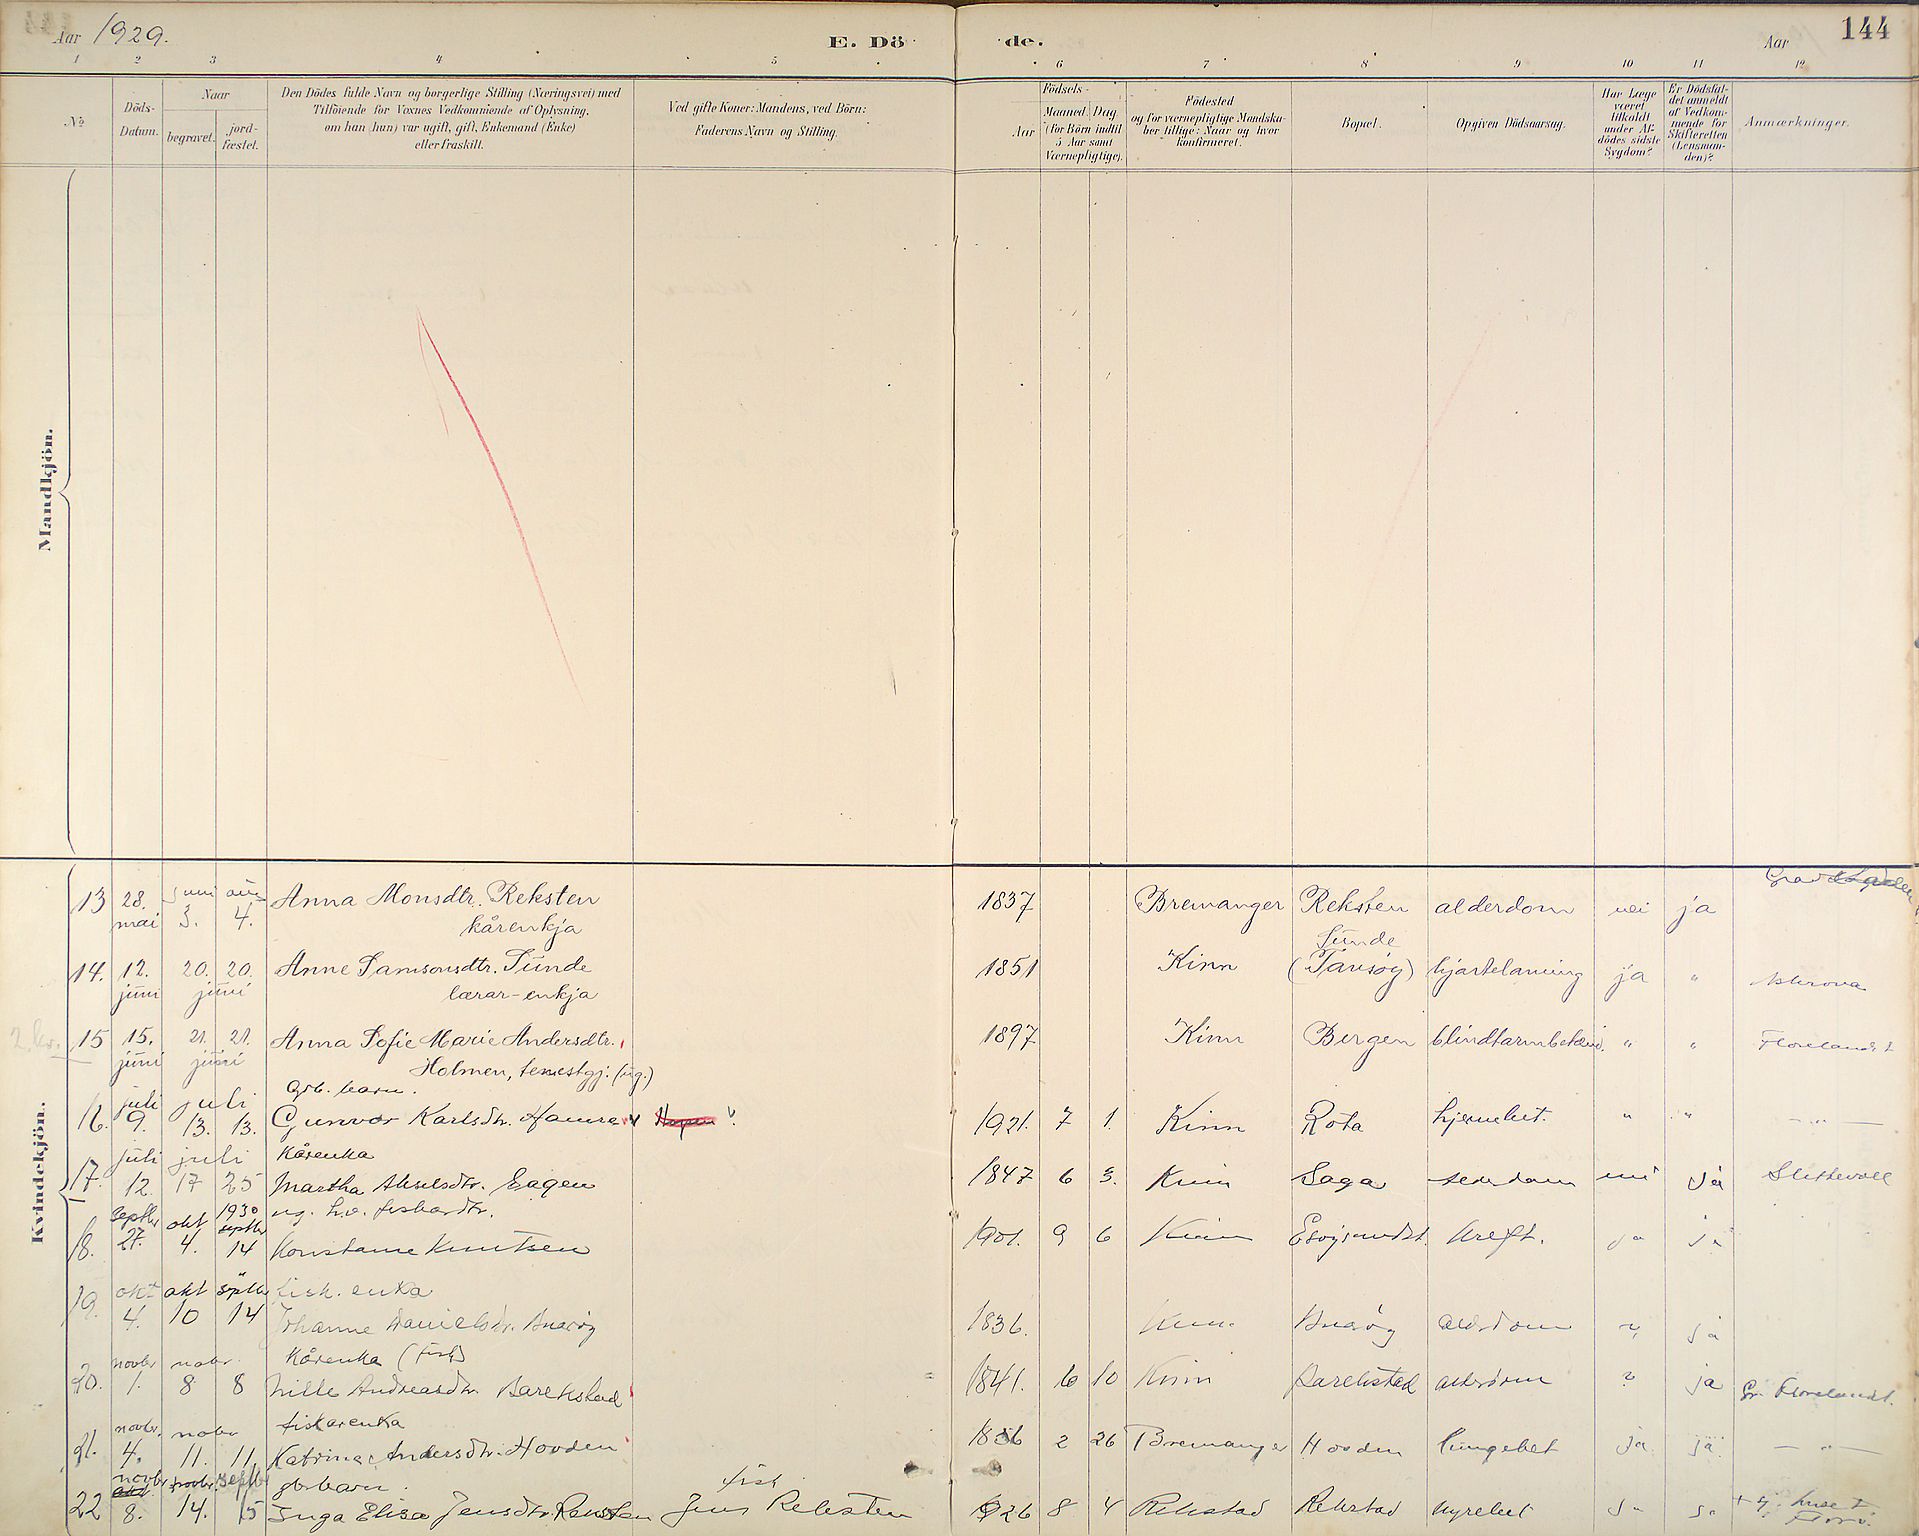 Aar 1929. E. Dö de. Aar 144
1 2 3 4 5 6 7 8 9 10 11 12
№
Döds-
Datum.
Naar
begravet.
jord-
fæstet.
Den Dödes fulde Navn og borgerlige Stilling (Næringsvei) med
Tilföiende for Voxnes Vedkommende af Oplysning,
om han (hun) var ugift, gift, Enkemand (Enke)
eller fraskilt.
Ved gifte Koner: Mandens, ved Börn:
Faderens Navn og Stilling.
Födsels-
Aar
Maaned Dag
(for Börn indtil
5 Aar samt
Værnepligtige).
Födested
og for værnepligtige Mandska-
ber tillige: Naar og hvor
konfirmeret.
Bopæl.
Opgiven Dödsaarsag.
Har Læge
været
tilkaldt
under Af-
dödes sidste
Sygdom?
Er Dödsfal-
det anmeldt
af Vedkom-
mende for
Skifteretten
(Lensman-
den)?
Anmærkninger.
Mandkjön.
Kvindekjön.
juni aug
13 28. 3. 4. Anna Monsdtr. Reksten 1837 Bremanger Reksten alderdom nei ja
mai kårenkja
Sunde
14. 12. 20. 20. Anne Samsonsdtr. Sunde 1851 Kinn (Tansøy) hjartelaming ja "
juni juni lærar-enkja
15 15. 21. 21. Anna Sofie Marie Andersdtr. 1897 Kinn Bergen " " Florelandet
juni juni Holmen, (ug.)
juli juli Grb. barn.
16. 9. 13. 13. Gunvor Karlsdtr. 1921. 7 1. Kinn Rota " " — " —
juli juli Kårenka
17. 12. 17 25 Martha 1847 6 3. Kinn ja
septbr okt 1930 septbr ug.
18. 27. 4. 14 Konstanse Knutsen 1901. 9 6 Kinn kreft. ja ja
okt okt septbr fisk. enka
19. 4. 10 14 Johanne Danielsdtr. 1836. Kinn ja
novbr novbr. Kårenka (fisk)
20. 1. 8 8 Andreasdtr. Barekstad 1841. 6 10 Kinn Barekstad ja Florelandet.
novbr. novbr fiskarenka
21. 4. 11. 11. Katrina Andersdtr. Hovden 2 26 Bremanger Hovden ja ja — " —
novbr novbr. septbr gbr. barn. fisk
22 8. 14. 15 Inga Elisa Jensdtr. Reksten Jens Reksten 1926 8 4 Rekstad Rekstad ja ja